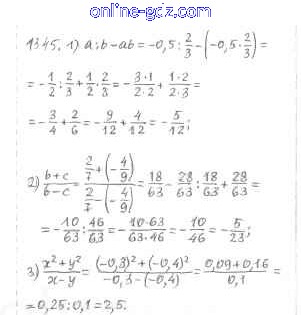 online-gdz.com
1345. 1) a:b-ab=-0,5:2/3-(-0,5·2/3)=
=-1/2:2/3+1/2·2/3=-3·1/2·2+1·2/2·3=
=-3/4+2/6=-9/12+4/12=-5/12;
2) b+c/b-c=2/7+(-4/9)/2/7-(-4/9)=18/63-28/63:18/63+28/63=
=-10/63:46/63=-10·63/63·46=-10/46=-5/23;
3) x²+y²/x-y=(-0,3)²+(-0,4)²/-0,3-(-0,4)=0,09+0,16/0,1=
=0,25:0,1=2,5.